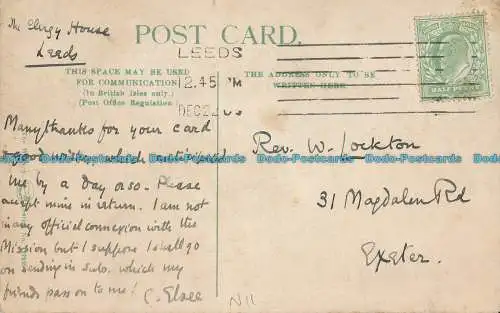 The Clergy House
Leeds
POST CARD.
LEEDS
2.45 PM
DEC 22
THIS SPACE MAY BE USED
FOR COMMUNICATION
(In British Isles only.)
(Post Office Regulation
THE ADDRESS ONLY TO BE
WRITTEN HERE.
HALF PENNY
Many thanks for your card
& good wishes which
me by a day or so. Please
accept mine in return. I am not
in any official connexion with the
Mission but I suppose I shall go
on sending in subs. which my
friends pass on to me!
Rev. W. Lockton
31 Magdalen Rd
Exeter.
N11
Dodo-Postcards Dodo-Postcards Dodo-Postcards Dodo-Postcards